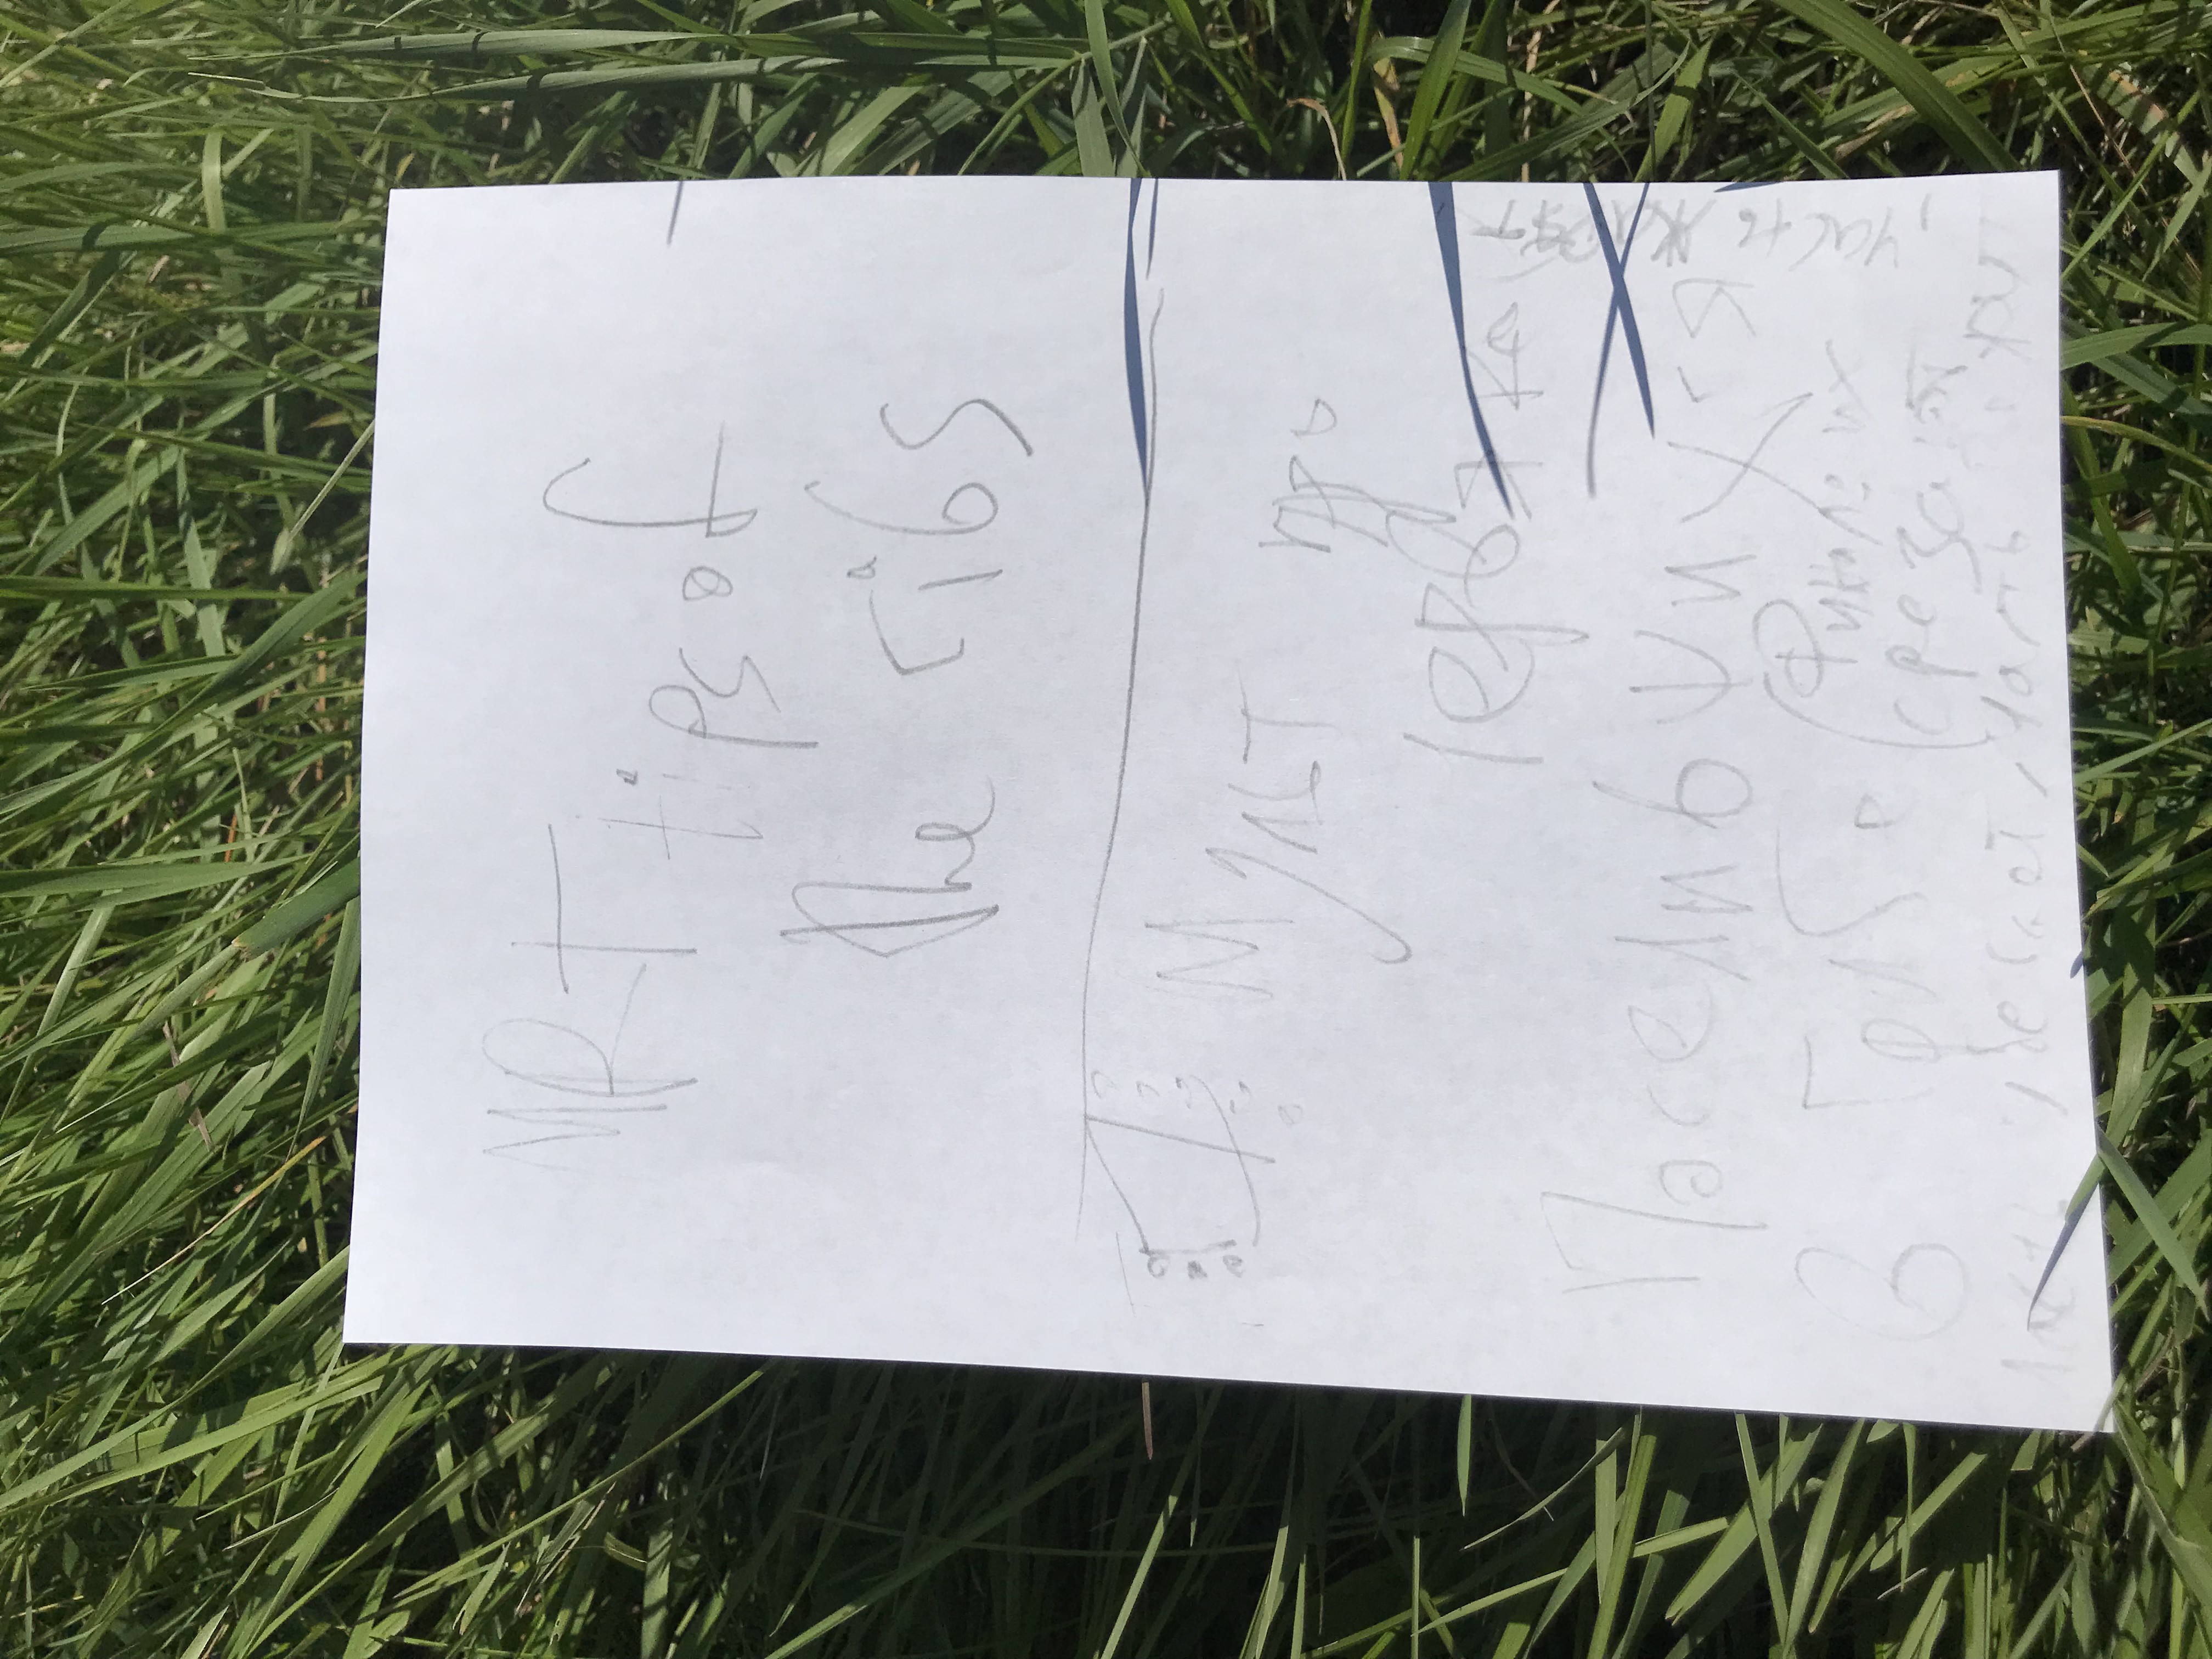 MRT tips of
the ribs
Мульт про
червяков
Поселивчихся
в грибе (Финал: их
срезают
часть убегает, часть
, часть жарят